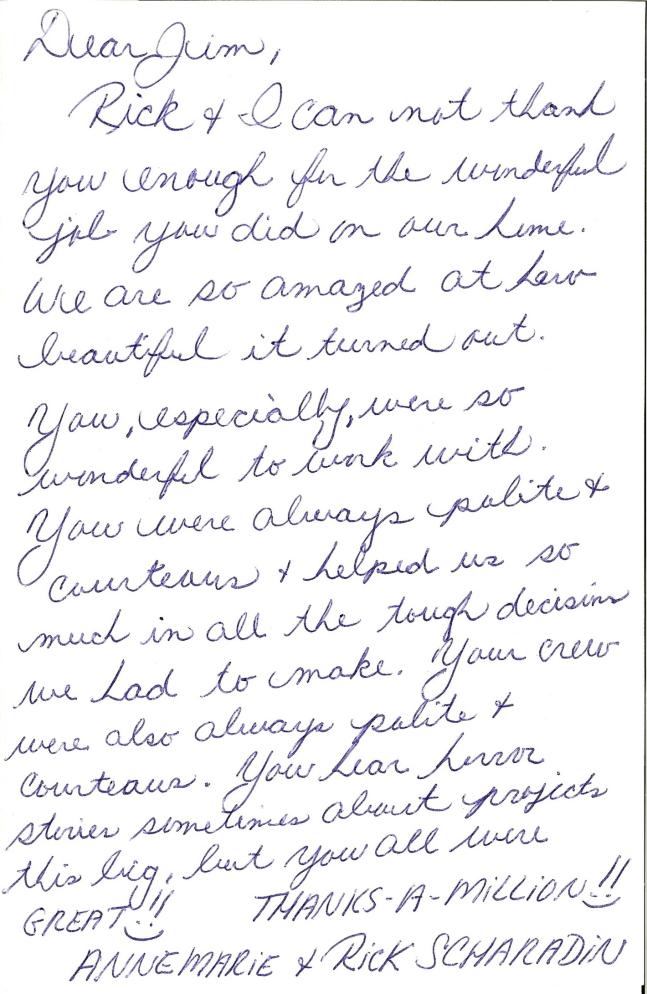 Dear Jim,
Rick & I can not thank
you enough for the wonderful
job you did on our home.
We are so amazed at how
beautiful it turned out.
You, especially, were so
wonderful to work with.
You were always polite &
courteous & helped us so
much in all the tough decisions
we had to make. Your crew
were also always polite &
courteous. You hear horror
stories sometimes about projects
this big, but you all were
GREAT!! THANKS-A-MILLION!!
ANNEMARIE & RICK SCHARADIN